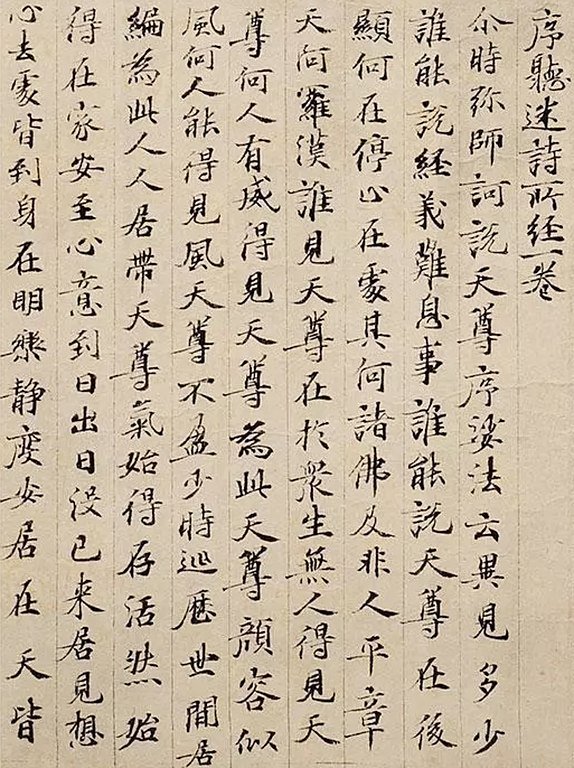 序聽迷詩所經一卷
尒時弥師訶說天尊序娑法云異見多少
誰能說經義難息事誰能說天尊在後
顯何在停止在處其何諸佛及非人平章
天何羅漢誰見天尊在於眾生無人得見天
尊何人有威得見天尊為此天尊顏容似
風何人能得見風天尊不盈少時巡歷世間居
編為此人人居帶天尊氣始得存活然始
得在家安至心意到日出日沒已來居見想
心去處皆到身在明樂静度安居在天皆